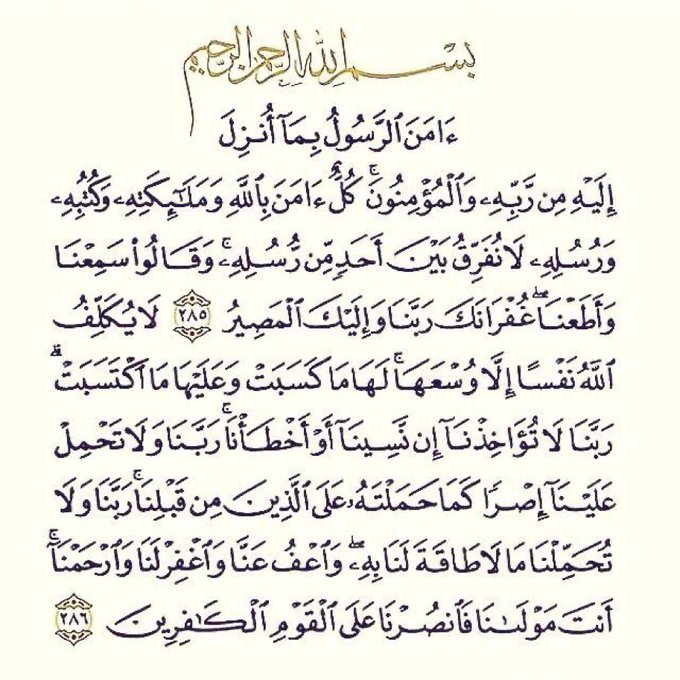 بِسْمِ اللهِ الرَّحْمٰنِ الرَّحِيمِ
ءَامَنَ ٱلرَّسُولُ بِمَآ أُنزِلَ
إِلَيْهِ مِن رَّبِّهِۦ وَٱلْمُؤْمِنُونَۚ كُلٌّ ءَامَنَ بِٱللَّهِ وَمَلَٰٓئِكَتِهِۦ وَكُتُبِهِۦ
وَرُسُلِهِۦ لَا نُفَرِّقُ بَيْنَ أَحَدٍ مِّن رُّسُلِهِۦۚ وَقَالُوا۟ سَمِعْنَا
وَأَطَعْنَاۖ غُفْرَانَكَ رَبَّنَا وَإِلَيْكَ ٱلْمَصِيرُ ٢٨٥ لَا يُكَلِّفُ
ٱللَّهُ نَفْسًا إِلَّا وُسْعَهَاۚ لَهَا مَا كَسَبَتْ وَعَلَيْهَا مَا ٱكْتَسَبَتْۗ
رَبَّنَا لَا تُؤَاخِذْنَآ إِن نَّسِينَآ أَوْ أَخْطَأْنَاۚ رَبَّنَا وَلَا تَحْمِلْ
عَلَيْنَآ إِصْرًا كَمَا حَمَلْتَهُۥ عَلَى ٱلَّذِينَ مِن قَبْلِنَاۚ رَبَّنَا وَلَا
تُحَمِّلْنَا مَا لَا طَاقَةَ لَنَا بِهِۦۖ وَٱعْفُ عَنَّا وَٱغْفِرْ لَنَا وَٱرْحَمْنَآۚ
أَنتَ مَوْلَىٰنَا فَٱنصُرْنَا عَلَى ٱلْقَوْمِ ٱلْكَٰفِرِينَ ٢٨٦